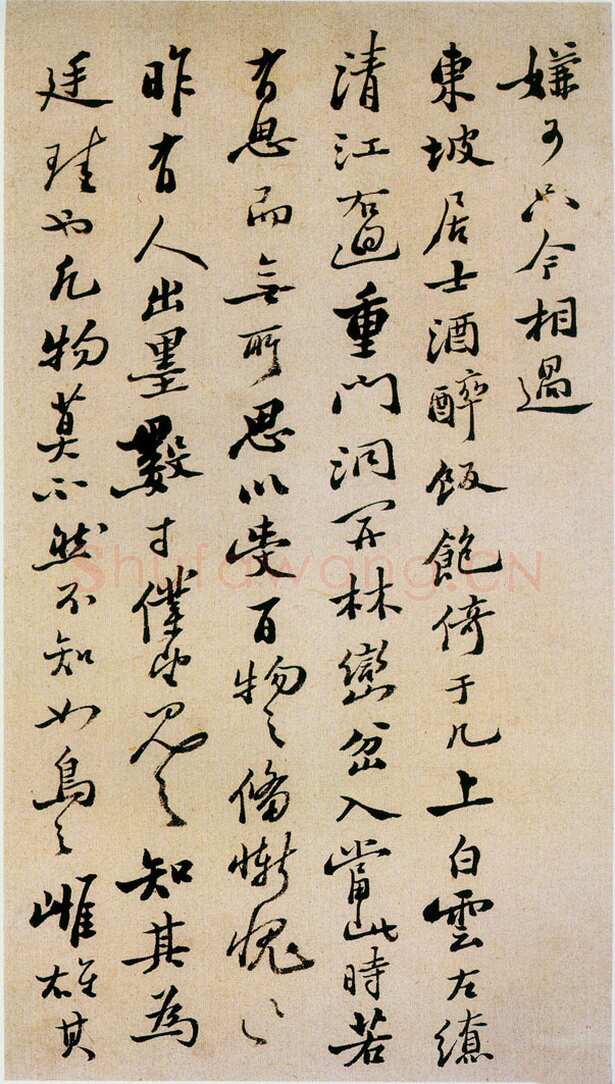 嫌可只今相過
東坡居士酒醉飯飽倚于几上白雲左繚
清江右迴重門洞開林巒坌入當此時若
有思而無所思以受百物之備慚愧〻
昨有人出墨數寸僕望見之知其為
廷珪也凡物莫不然不知如鳥之雌雄其
Shufawang.CN